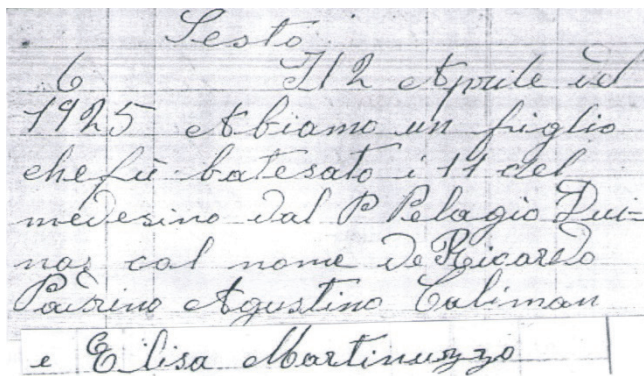 Sesto
6 Il 2 Aprile del
1925 Abiamo un figlio
che fù batesato i 11 del
medesino dal P Pelagio Lui=
nas col nome De Ricardo
Padrino Agustino Caliman
e Elisa Martinuzzo